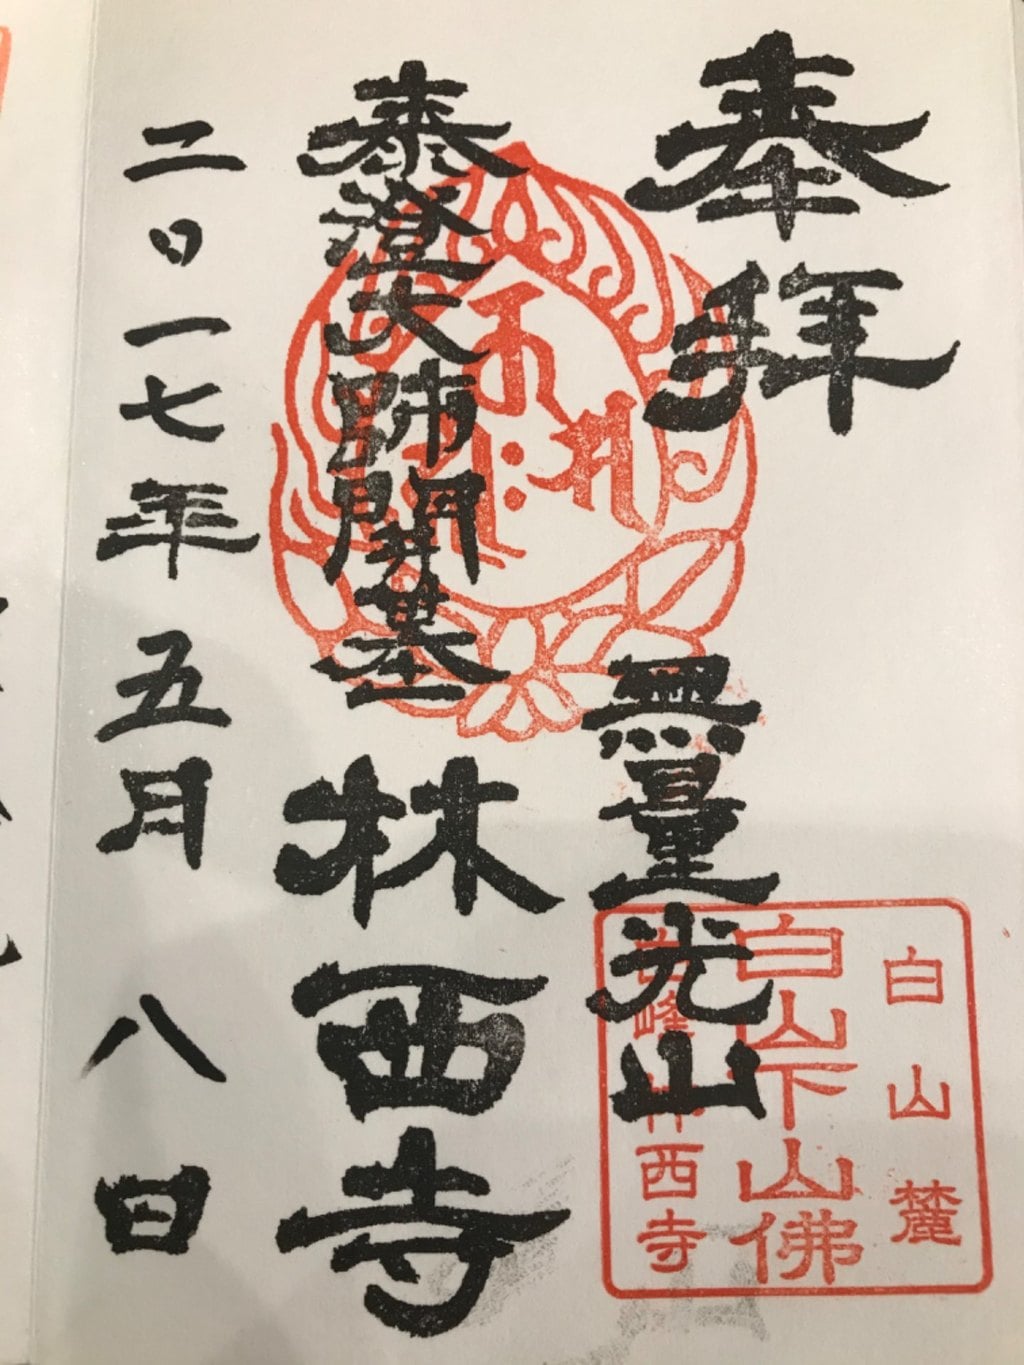 奉拝
無量光山
泰澄大師開基
林西寺
二〇一七年五月八日
白山麓
白山下山佛
白峰 林西寺